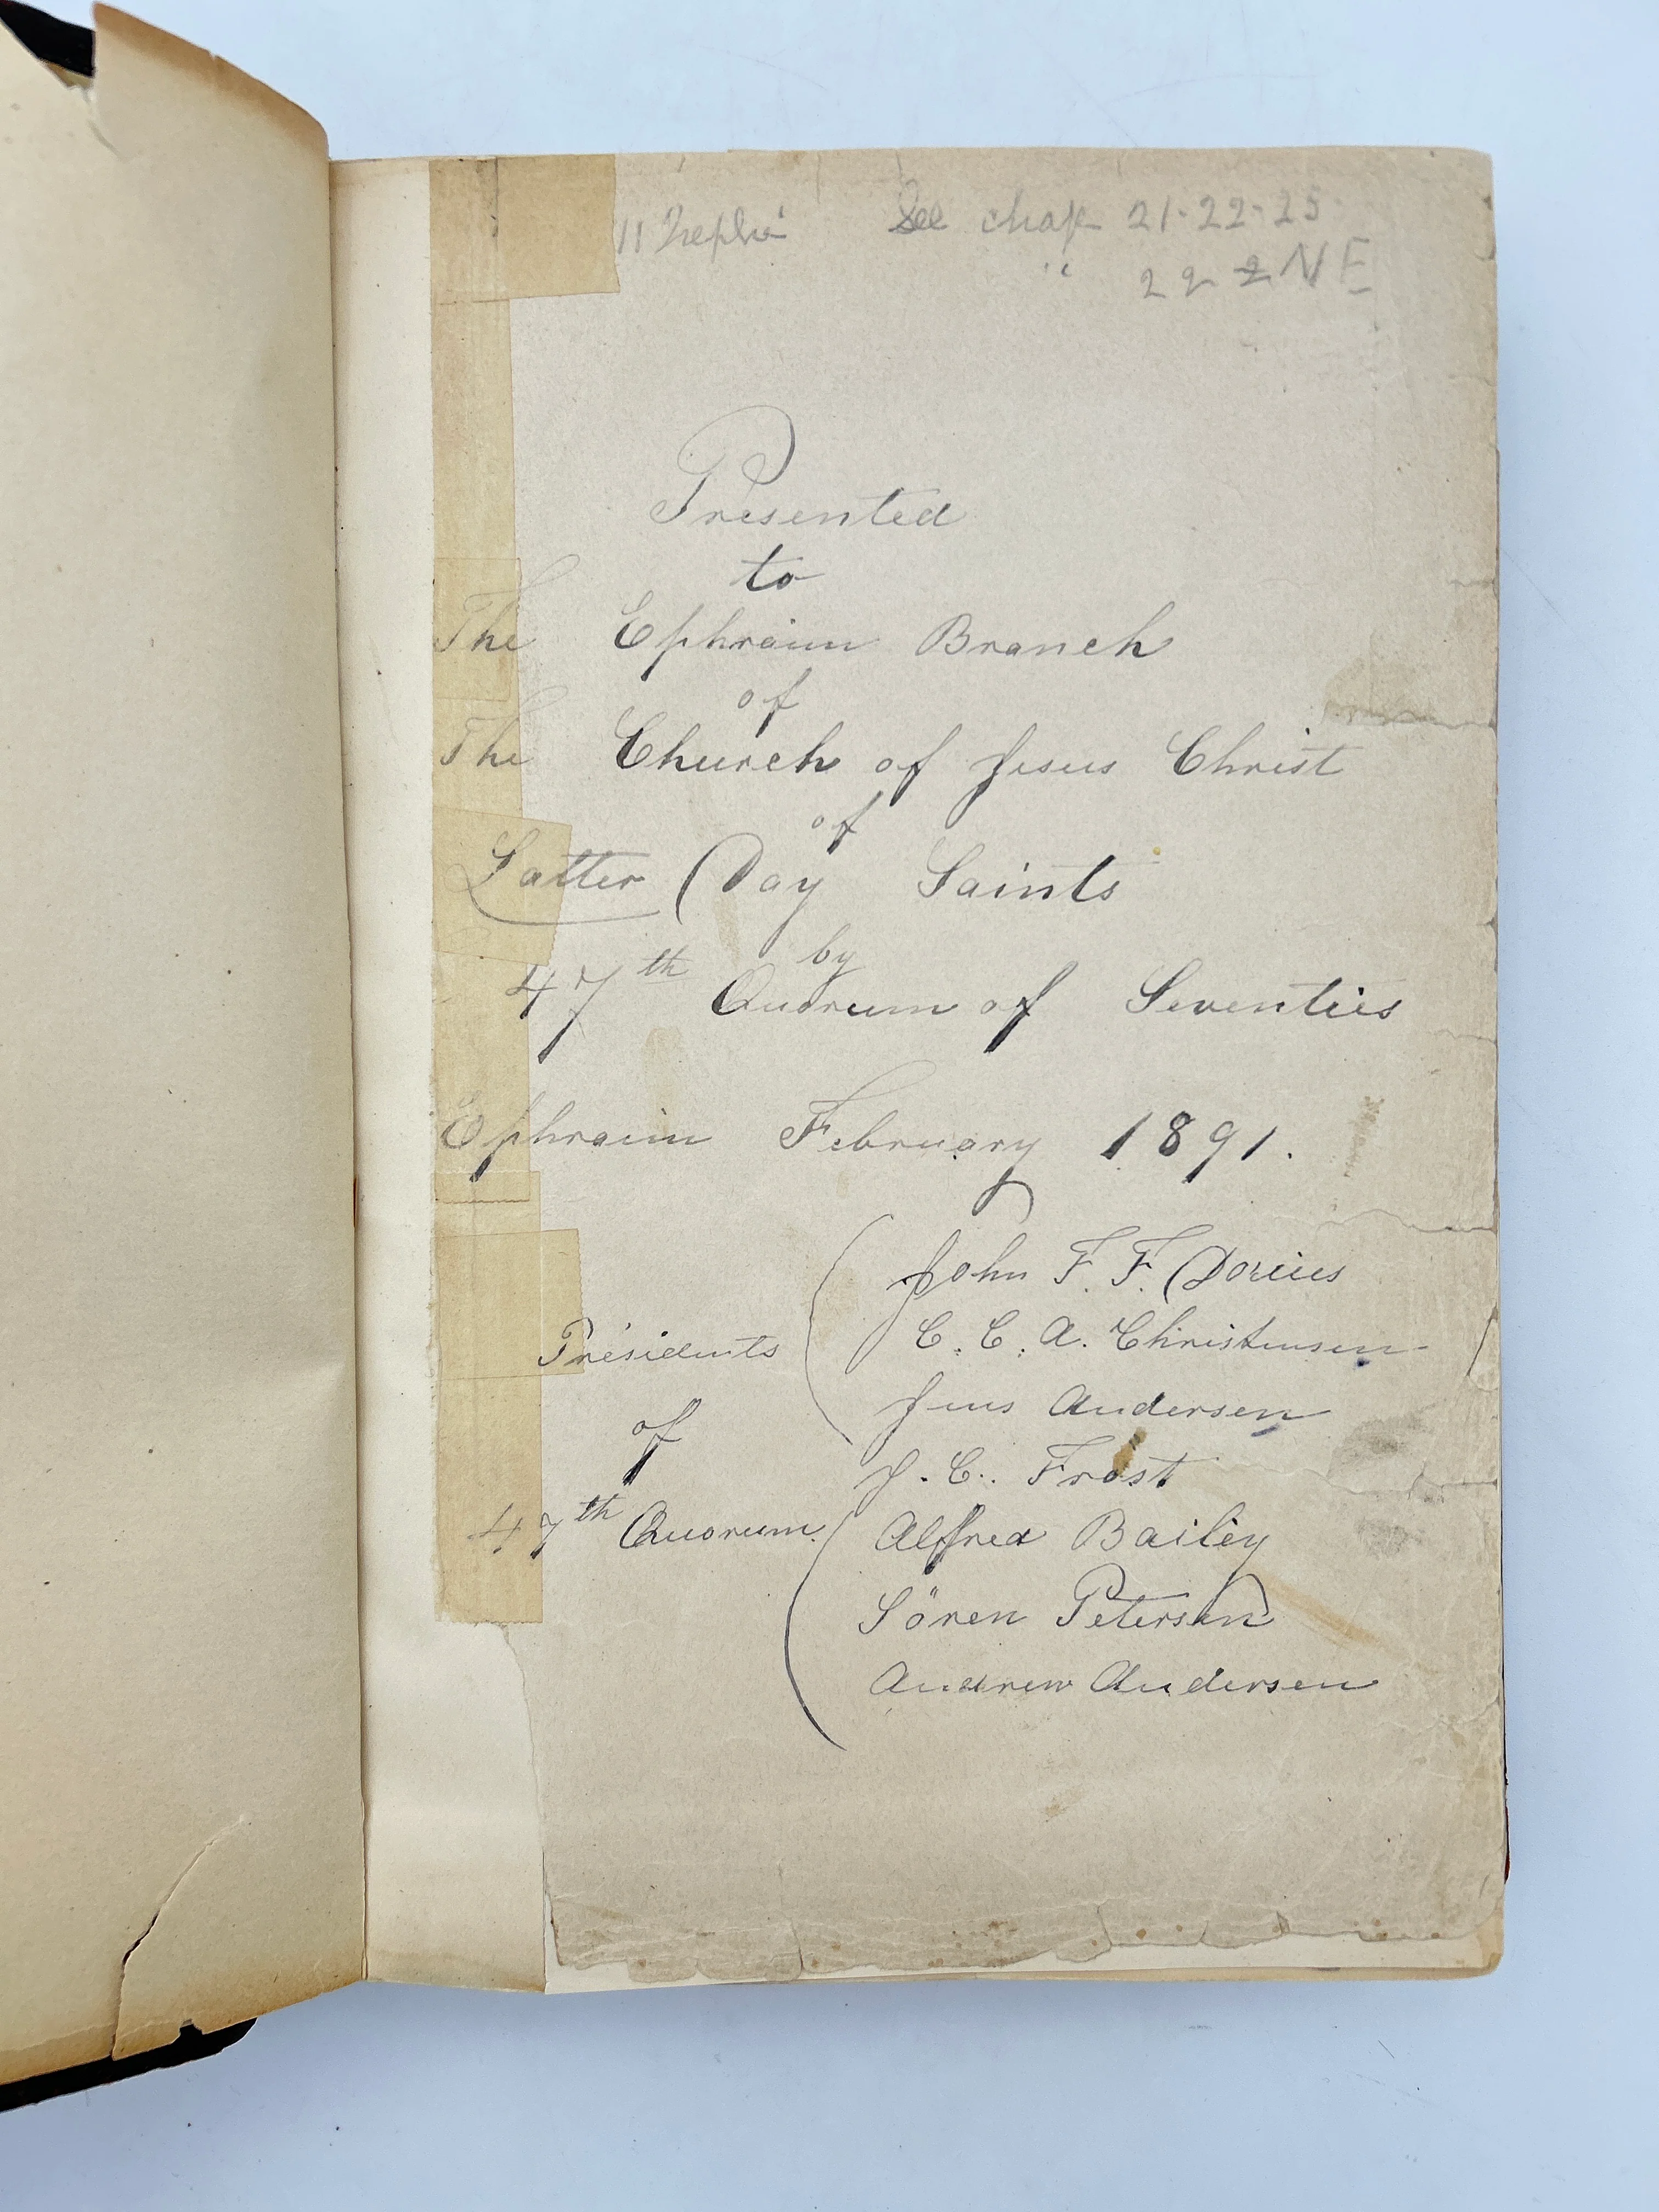 11 Nephi See chap 21-22-25
" 22 2 NE
Presented
to
The Ephraim Branch
of
The Church of Jesus Christ
of
Latter Day Saints
by
47th Quorum of Seventies
Ephraim February 1891.
John F. F. Dorius
Presidents C. C. A. Christensen
Jens Andersen
of J. C. Frost
47th Quorum. Alfred Bailey
Sören Petersen
Andrew Andersen